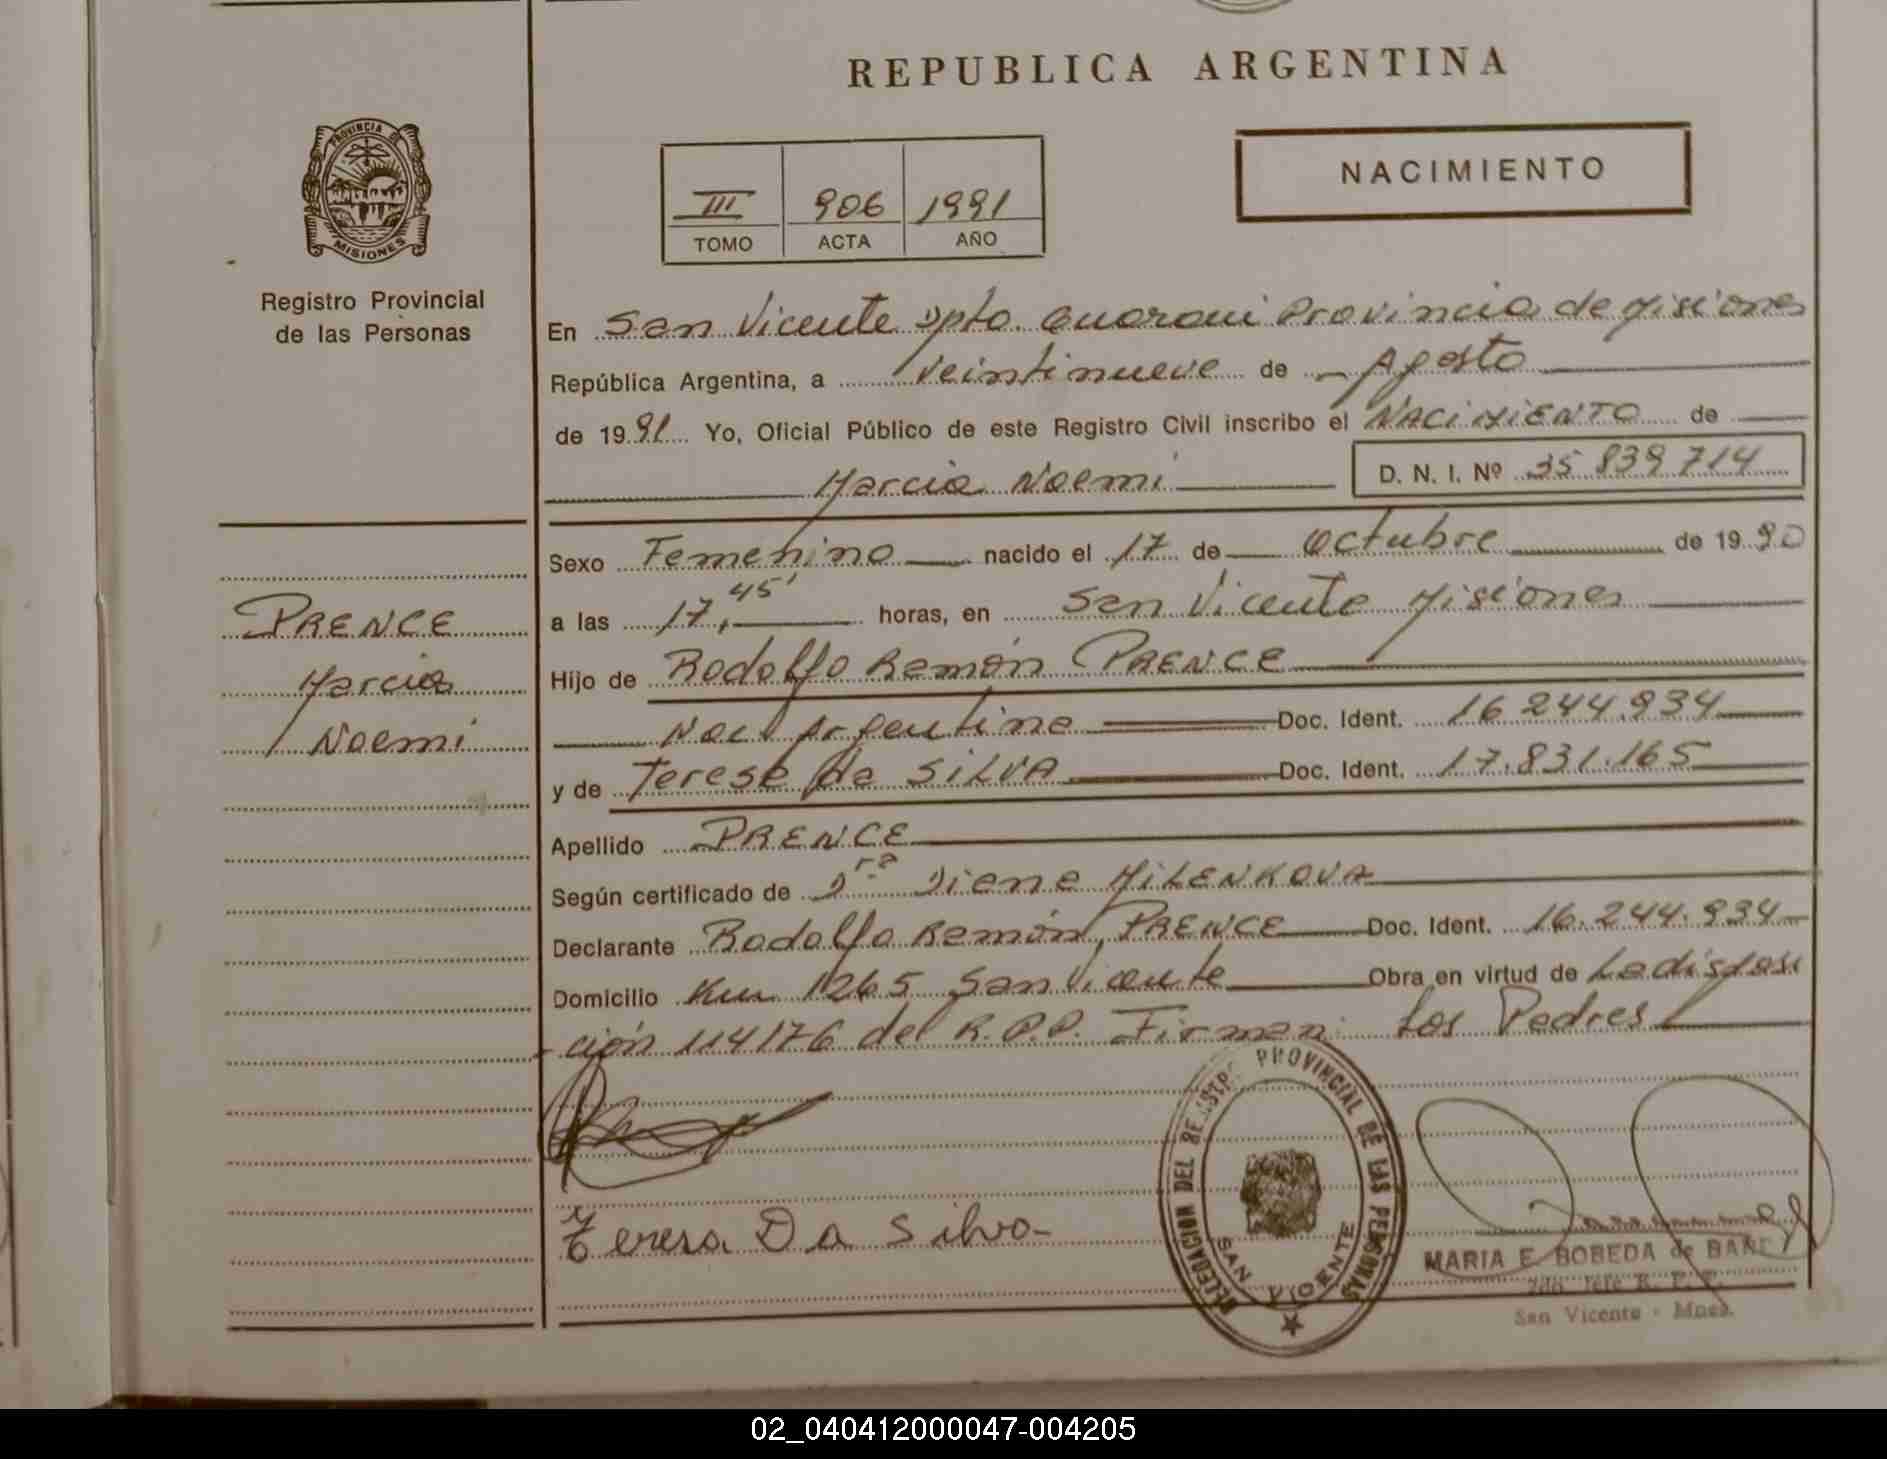 REPUBLICA ARGENTINA
PROVINCIA DE
MISIONES
Registro Provincial
de las Personas
NACIMIENTO
III 906 1991
TOMO ACTA AÑO
En San Vicente Dpto. Guarani Provincia de Misiones
República Argentina, a veintinueve de Agosto
de 1991 Yo, Oficial Público de este Registro Civil inscribo el NACIMIENTO de
Marcia Noemi D. N. I. Nº 35 839 714
Sexo Femenino nacido el 17 de Octubre de 1990
a las 17,45' horas, en San Vicente Misiones
PRENCE
Marcia
Noemi
Hijo de Rodolfo Ramón PRENCE
Nac. Argentina Doc. Ident. 16 244.934
y de Teresa da SILVA Doc. Ident. 17.831.165
Apellido PRENCE
Según certificado de Dra Diana MILENKOVA
Declarante Rodolfo Ramón PRENCE Doc. Ident. 16.244.934
Domicilio Km 1265 San Vicente Obra en virtud de La disposi
ción 114176 del R.P.P. Firman: Los Padres
Teresa Da Silva
DELEGACION DEL REGISTRO PROVINCIAL DE LAS PERSONAS
SAN VICENTE
MARIA E. BOBEDA de
San Vicente - Mnes.
02_040412000047-004205